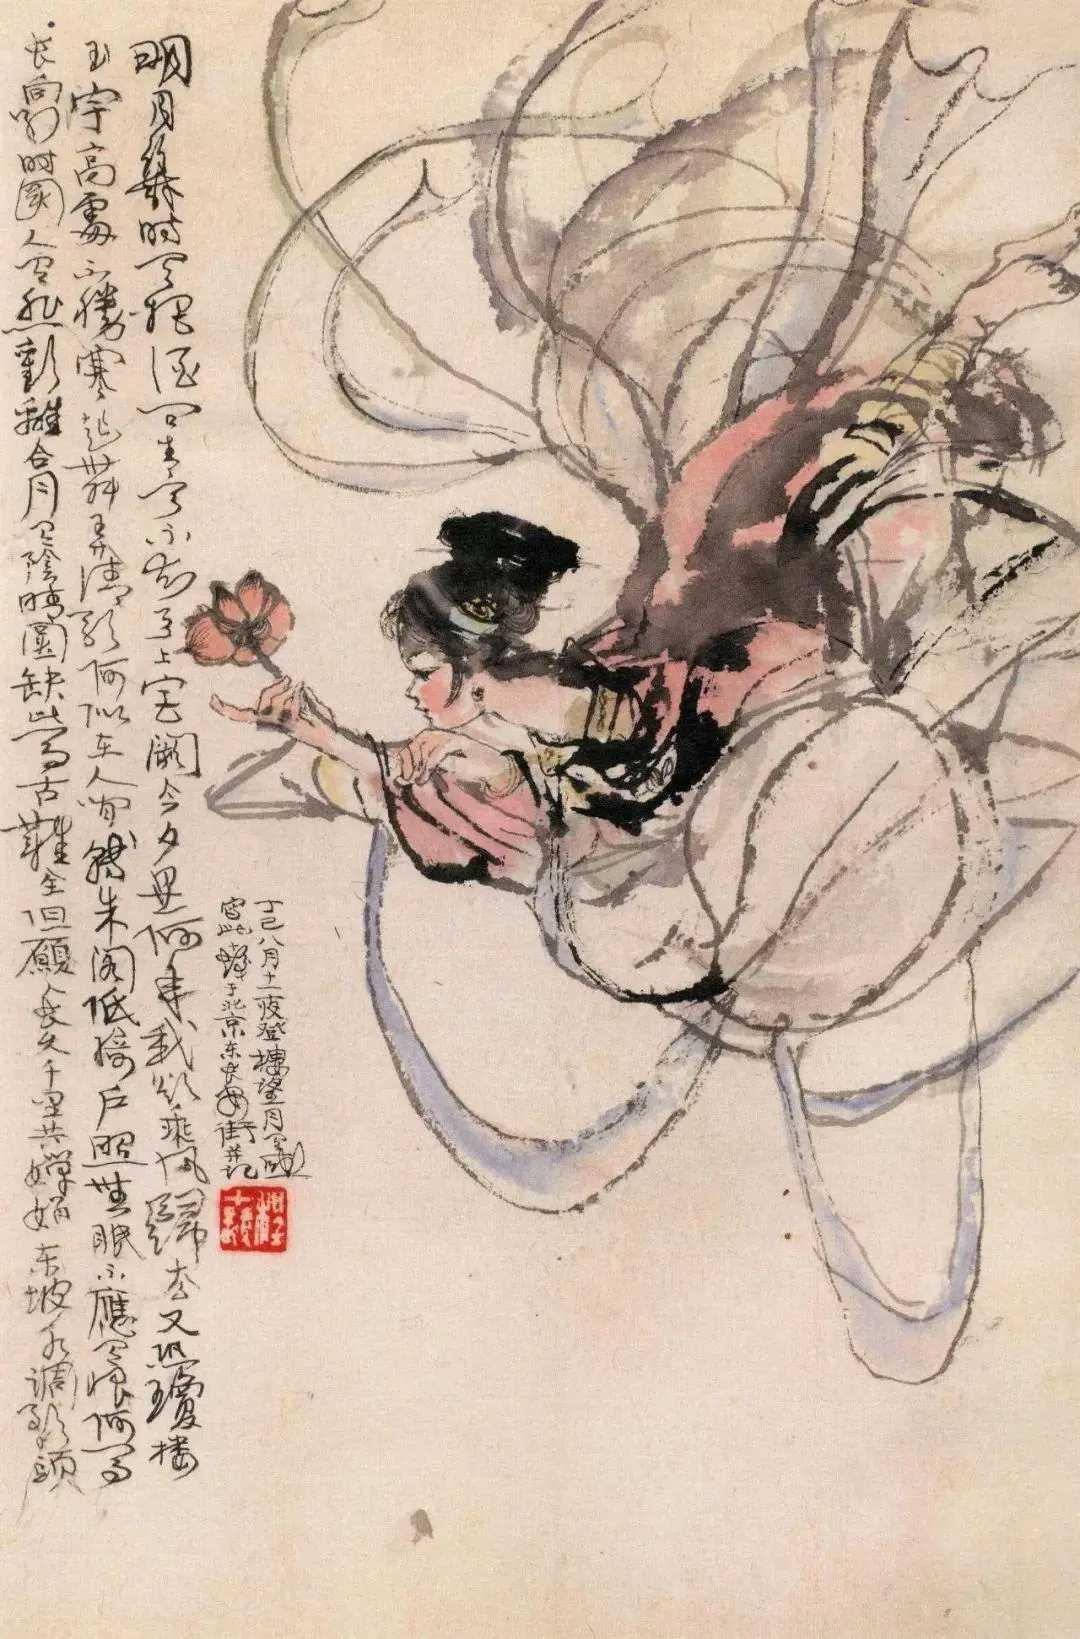 明月幾时有把酒问青天不知天上宫阙今夕是何年我欲乘风歸去又恐瓊楼
玉宇高處不勝寒起舞弄清影何似在人间转朱阁低绮户照無眠不應有恨何事
长向别时圆人有悲歡離合月有陰晴圓缺此事古難全但願人长久千里共嬋娟东坡水调歌頭
丁巳八月十二夜登樓望月有感
写此于北京东长安街并记